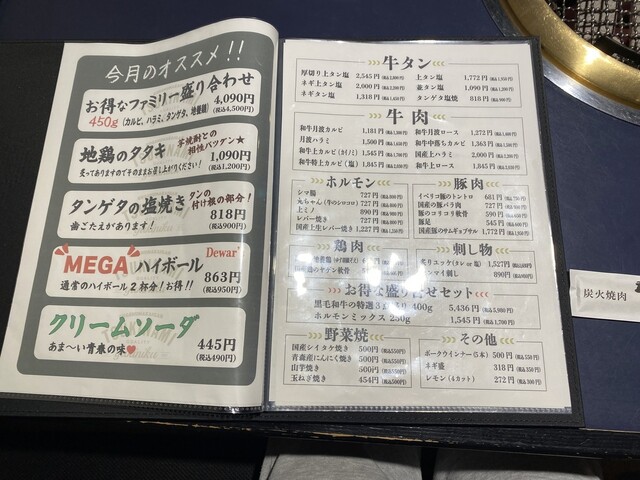 今月のオススメ!!
お得なファミリー盛り合わせ
450g (カルビ、ハラミ、タンゲタ、地養鶏)
4,090円
(税込4,500円)
地鶏のタタキ
芋焼酎との
相性バツゲン★
炙ってありますのでそのままお召し上がりください!
1,090円
(税込1,200円)
タンゲタの塩焼き
タンの
付け根の部分!
歯ごたえがあります!
818円
(税込900円)
MEGAハイボール
Dewar's
通常のハイボール2杯分!お得!!
863円
(税込950円)
クリームソーダ
あま〜い青春の味
445円
(税込490円)
牛タン
厚切り上タン塩 2,545円(税込2,800円)
ネギ上タン塩 2,000円
ネギタン塩 1,318円
上タン塩 1,772円(税込1,950円)
並タン塩 1,090円
タンゲタ塩焼 818円(税込900円)
牛肉
和牛月波カルビ 1,181円
月波ハラミ 1,500円
和牛上カルビ 1,545円
和牛特上カルビ(塩) 1,845円
和牛月波ロース 1,272円
和牛中落ちカルビ 1,363円
国産上ハラミ 2,000円
和牛上ロース 1,545円
ホルモン
シマ腸 727円
丸ちゃん(牛のシロコロ) 727円
上ミノ 890円
レバー焼き 727円
国産上生レバー焼き 1,227円
豚肉
イベリコ豚のトントロ 681円
国産の豚バラ肉 727円
豚のコリコリ軟骨 590円
豚足 545円
国産豚のサムギョプサル 1,772円
鶏肉
刺し物
炙りユッケ(タレor塩) 1,527円
センマイ刺し 890円
お得な盛り合せセット
黒毛和牛の特選3 400g 5,436円
ホルモンミックス 250g 1,545円
野菜焼
国産シイタケ焼し 500円(税込550円)
青森産にんにく焼し 500円(税込550円)
山芋焼し 500円(税込550円)
玉ねぎ焼し 454円
その他
ポークウインナー(5本) 500円(税込550円)
ネギ盛 318円(税込350円)
レモン(4カット) 272円(税込300円)
炭火焼肉